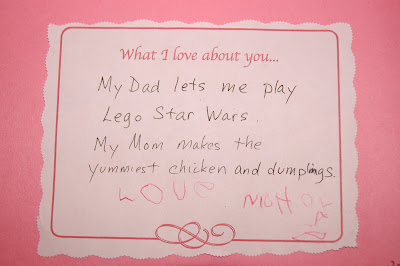 What I love about you...
My Dad lets me play
Lego Star Wars.
My Mom makes the
yummiest chicken and dumplings.
LOVE